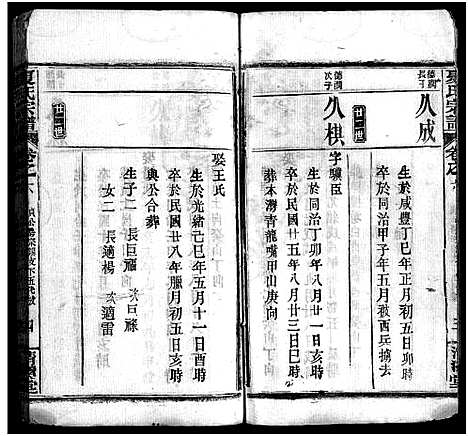 夏氏宗譜
卷之六
德潤
長子
久成
廿二世
生於咸豐丁巳年正月初五日卯時
卒於同治甲子年五月被酉兵擄去
德潤
次子
久棋
廿二世
字驥臣
生於同治丁卯年八月初一日戌時
卒於民國五年八月廿三日巳時
葬本灣青龍嘴甲山庚向
娶王氏
生於光緒己巳年五月十一日酉時
卒於民國廿八年臘月初五日亥時
與公合葬
生子二 長巨福 次巨祿
女二 長適楊 次適雷
夏氏宗譜
卷之六
四
清